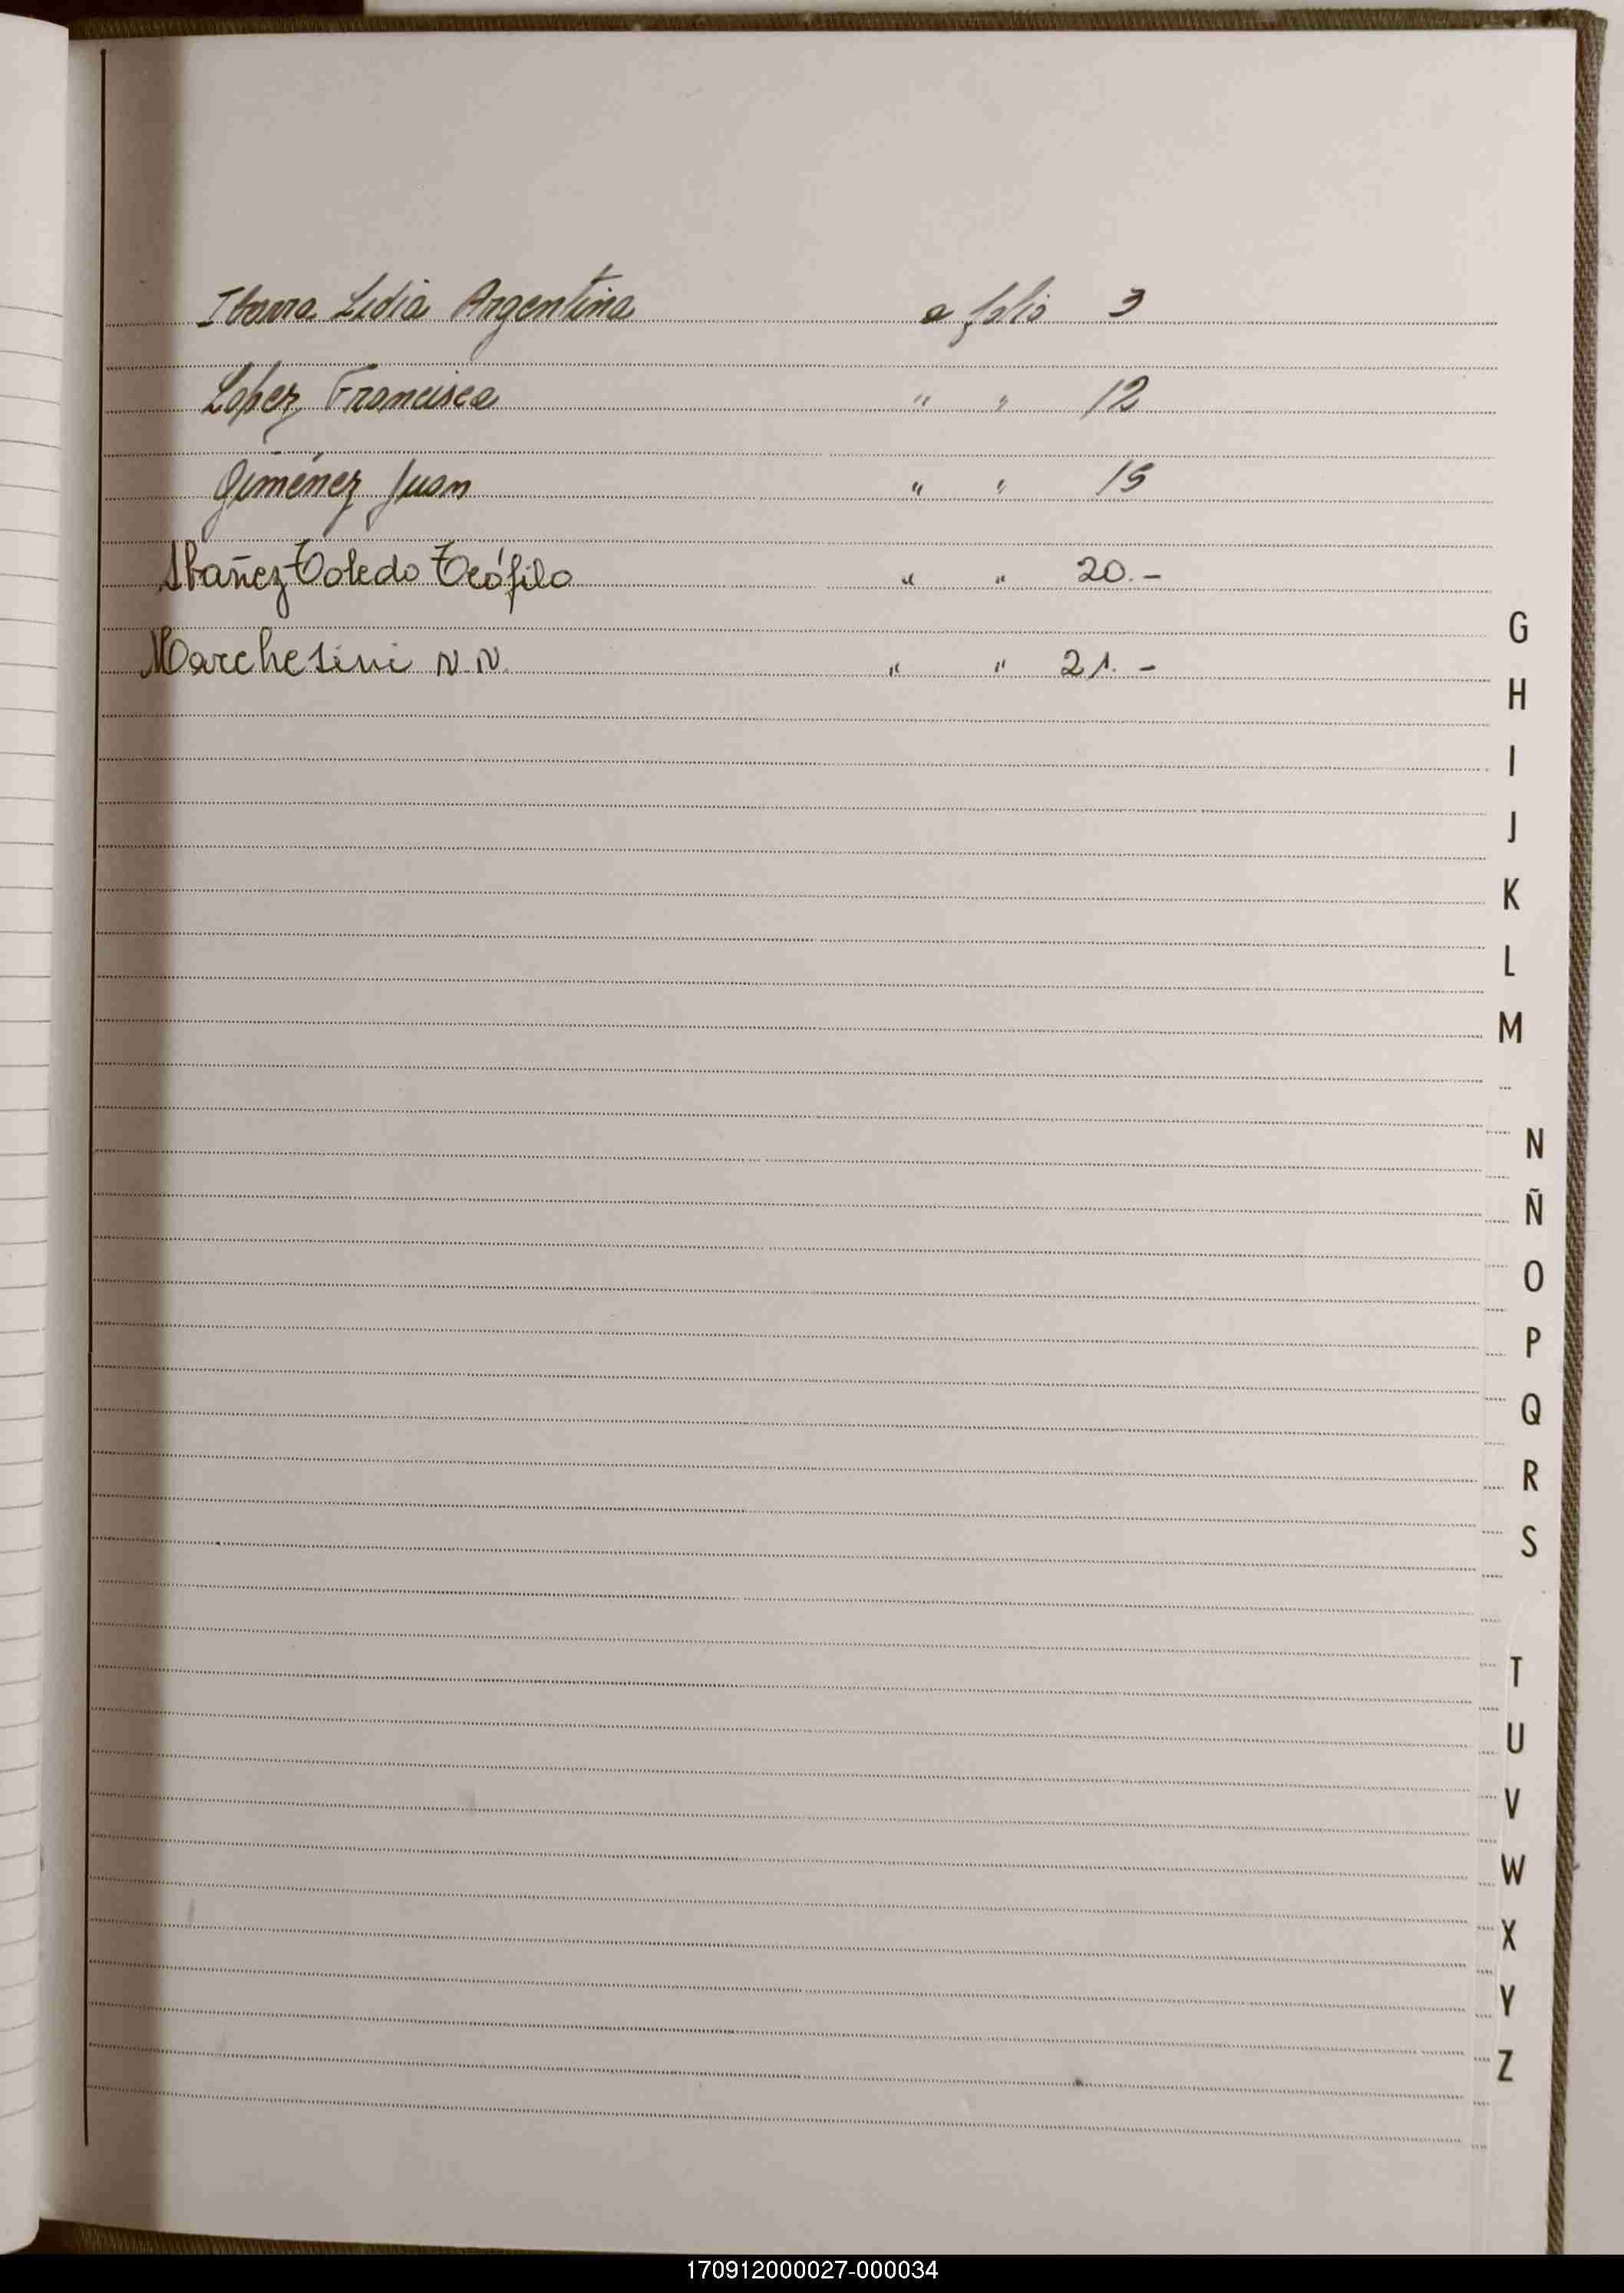 Ibarra Lidia Argentina a folio 3
Lopez Francisca " " 12
Giménez Juan " " 15
Ibañez Toledo Teófilo " " 20.-
Marchesini N.N. " " 21.-
G
H
I
J
K
L
M
N
Ñ
O
P
Q
R
S
T
U
V
W
X
Y
Z
170912000027-000034